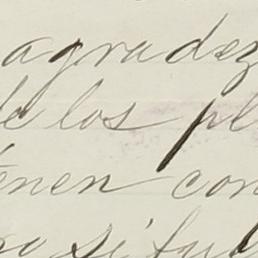 agradez
de los pl
tenen con
no si fu